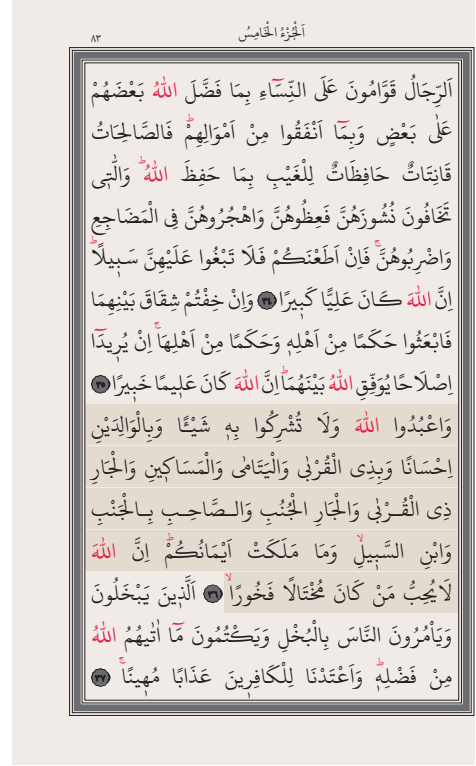 اَلْجُزْءُ الْخَامِسُ
٨٣
اَلرِّجَالُ قَوَّامُونَ عَلَى النِّسَٓاءِ بِمَا فَضَّلَ اللّٰهُ بَعْضَهُمْ
عَلٰى بَعْضٍ وَبِمَٓا اَنْفَقُوا مِنْ اَمْوَالِهِمْۜ فَالصَّالِحَاتُ
قَانِتَاتٌ حَافِظَاتٌ لِلْغَيْبِ بِمَا حَفِظَ اللّٰهُۜ وَالّٰتٖى
تَخَافُونَ نُشُوزَهُنَّ فَعِظُوهُنَّ وَاهْجُرُوهُنَّ فِى الْمَضَاجِعِ
وَاضْرِبُوهُنَّۚ فَاِنْ اَطَعْنَكُمْ فَلَا تَبْغُوا عَلَيْهِنَّ سَبٖيلًاۜ
اِنَّ اللّٰهَ كَانَ عَلِيًّا كَبٖيرًا ﴿٣٤﴾ وَاِنْ خِفْتُمْ شِقَاقَ بَيْنِهِمَا
فَابْعَثُوا حَكَمًا مِنْ اَهْلِهٖ وَحَكَمًا مِنْ اَهْلِهَاۚ اِنْ يُرٖيدَٓا
اِصْلَاحًا يُوَفِّقِ اللّٰهُ بَيْنَهُمَاۜ اِنَّ اللّٰهَ كَانَ عَلٖيمًا خَبٖيرًا ﴿٣٥﴾
وَاعْبُدُوا اللّٰهَ وَلَا تُشْرِكُوا بِهٖ شَيْـًٔا وَبِالْوَالِدَيْنِ
اِحْسَانًا وَبِذِى الْقُرْبٰى وَالْيَتَامٰى وَالْمَسَاكٖينِ وَالْجَارِ
ذِى الْقُرْبٰى وَالْجَارِ الْجُنُبِ وَالصَّاحِبِ بِالْجَنْبِ
وَابْنِ السَّبٖيلِۙ وَمَا مَلَكَتْ اَيْمَانُكُمْۜ اِنَّ اللّٰهَ
لَا يُحِبُّ مَنْ كَانَ مُخْتَالًا فَخُورًاۙ ﴿٣٦﴾ اَلَّذٖينَ يَبْخَلُونَ
وَيَأْمُرُونَ النَّاسَ بِالْبُخْلِ وَيَكْتُمُونَ مَٓا اٰتٰيهُمُ اللّٰهُ
مِنْ فَضْلِهٖۜ وَاَعْتَدْنَا لِلْكَافِرٖينَ عَذَابًا مُهٖينًاۚ ﴿٣٧﴾